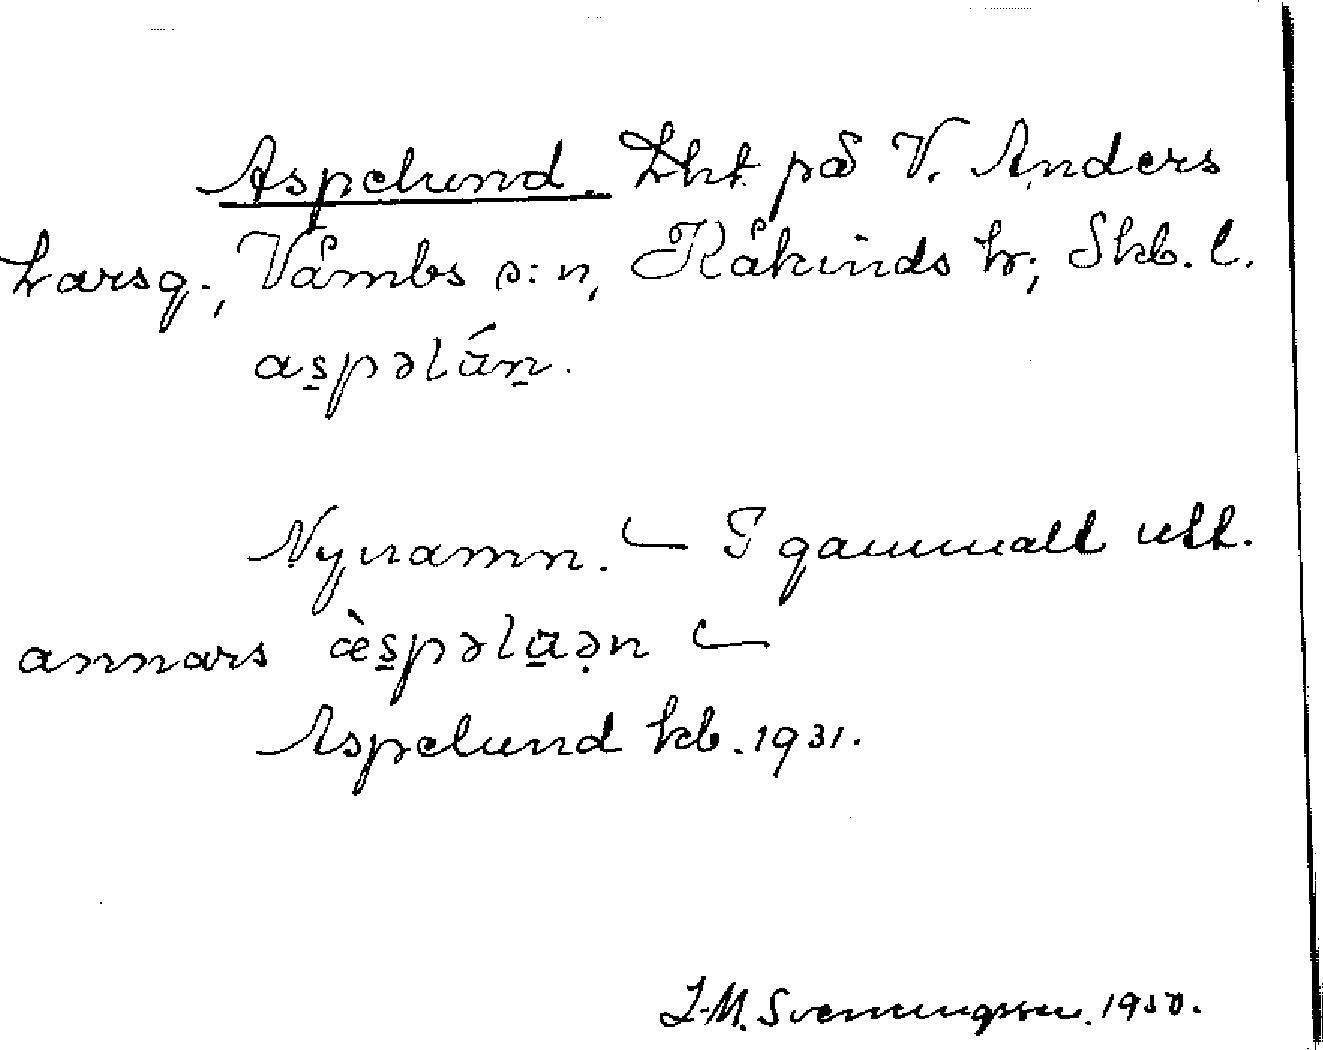 Aspelund. Lht på V. Anders
Larsg., Våmbs s:n, Kåkinds hr; Skb. l.
as̱pəlu̇́ṉ.
Nynamn. — I gammalt utt.
annars æ̀s̱pəlu̱ə̣n —
Aspelund kb. 1931.
I-M. Svenningsson. 1950.